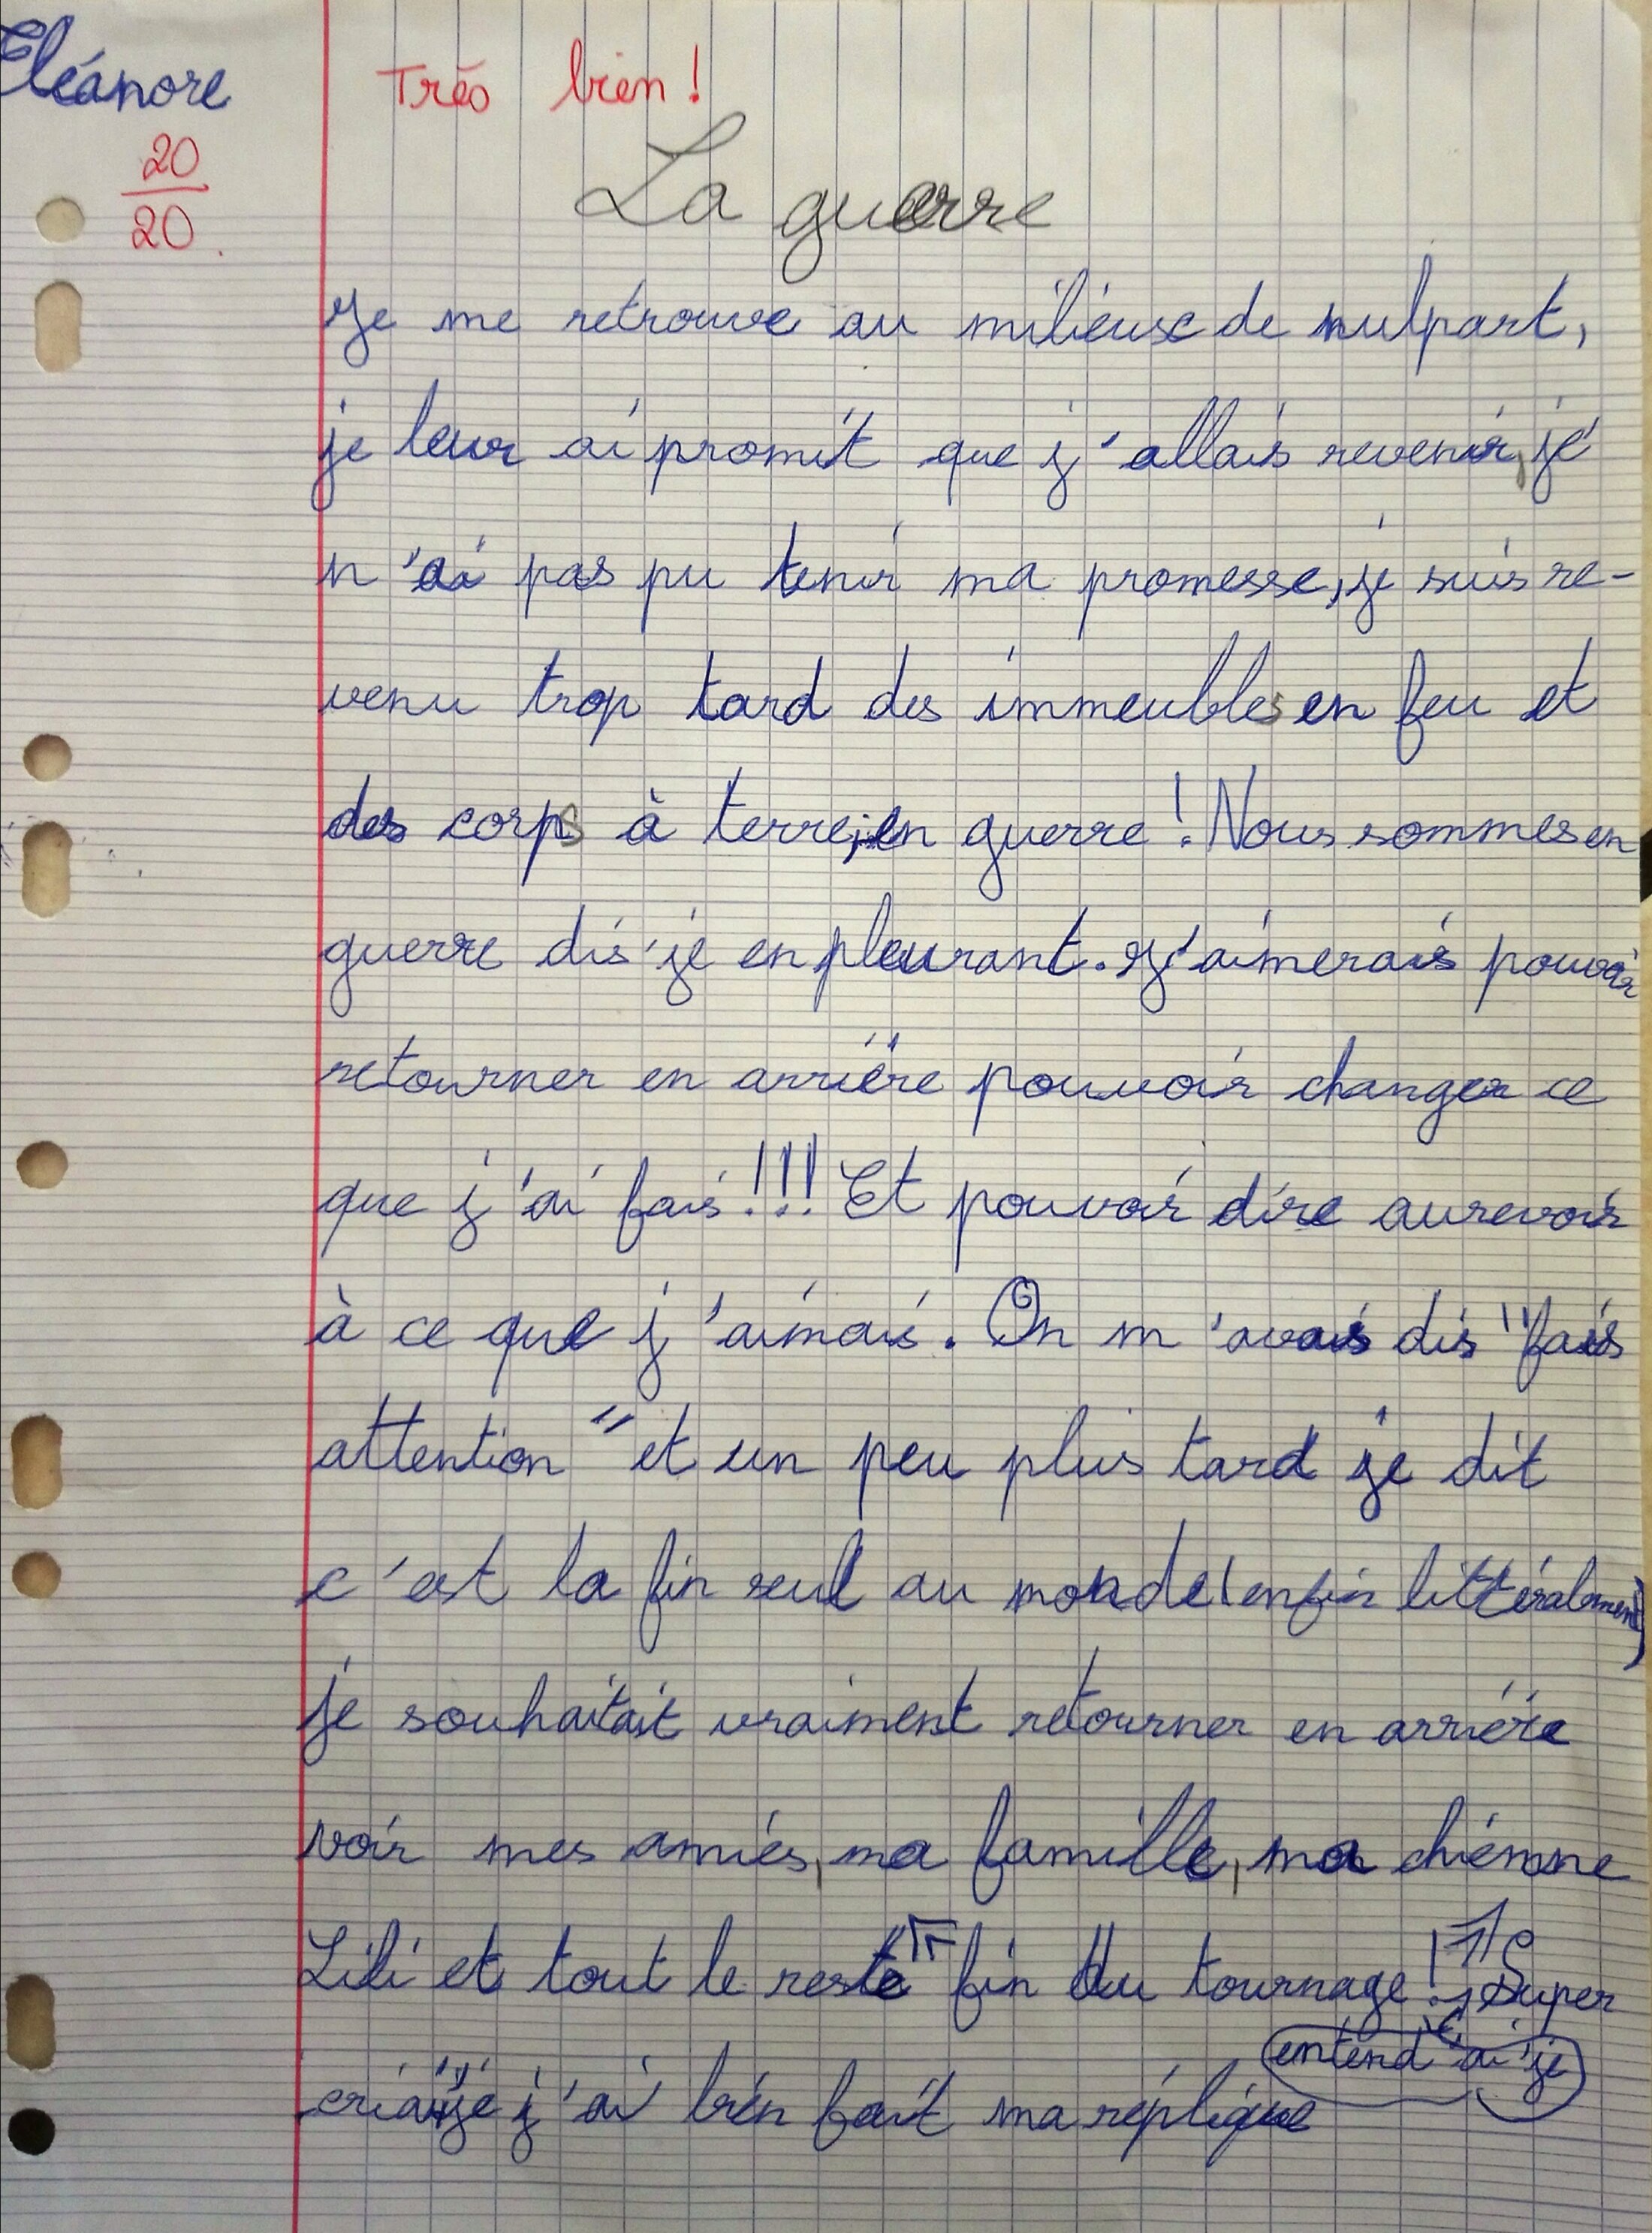 Eléanore
Très bien!
20
20.
La guerre
Je me retrouve au milieux de nulpart,
je leur ai promit que j'allais revenir, je
n'ai pas pu tenir ma promesse, je suis re-
venu trop tard des immeubles en feu et
des corps à terre, en guerre! Nous sommes en
guerre dis'je en pleurant. J'aimerais pouvoir
retourner en arriére pouvoir changer ce
que j'ai fais!!! Et pouvoir dire aurevoir
à ce que j'aimais. On m'avais dis "fais
attention" et un peu plus tard je dit
c'est la fin seul au monde(enfin littéralement)
je souhaitait vraiment retourner en arriére
voir mes amies, ma famille, ma chienne
Lili et tout le reste" fin du tournage! Super
entend'ai'je
criai'je j'ai bien fait ma réplique